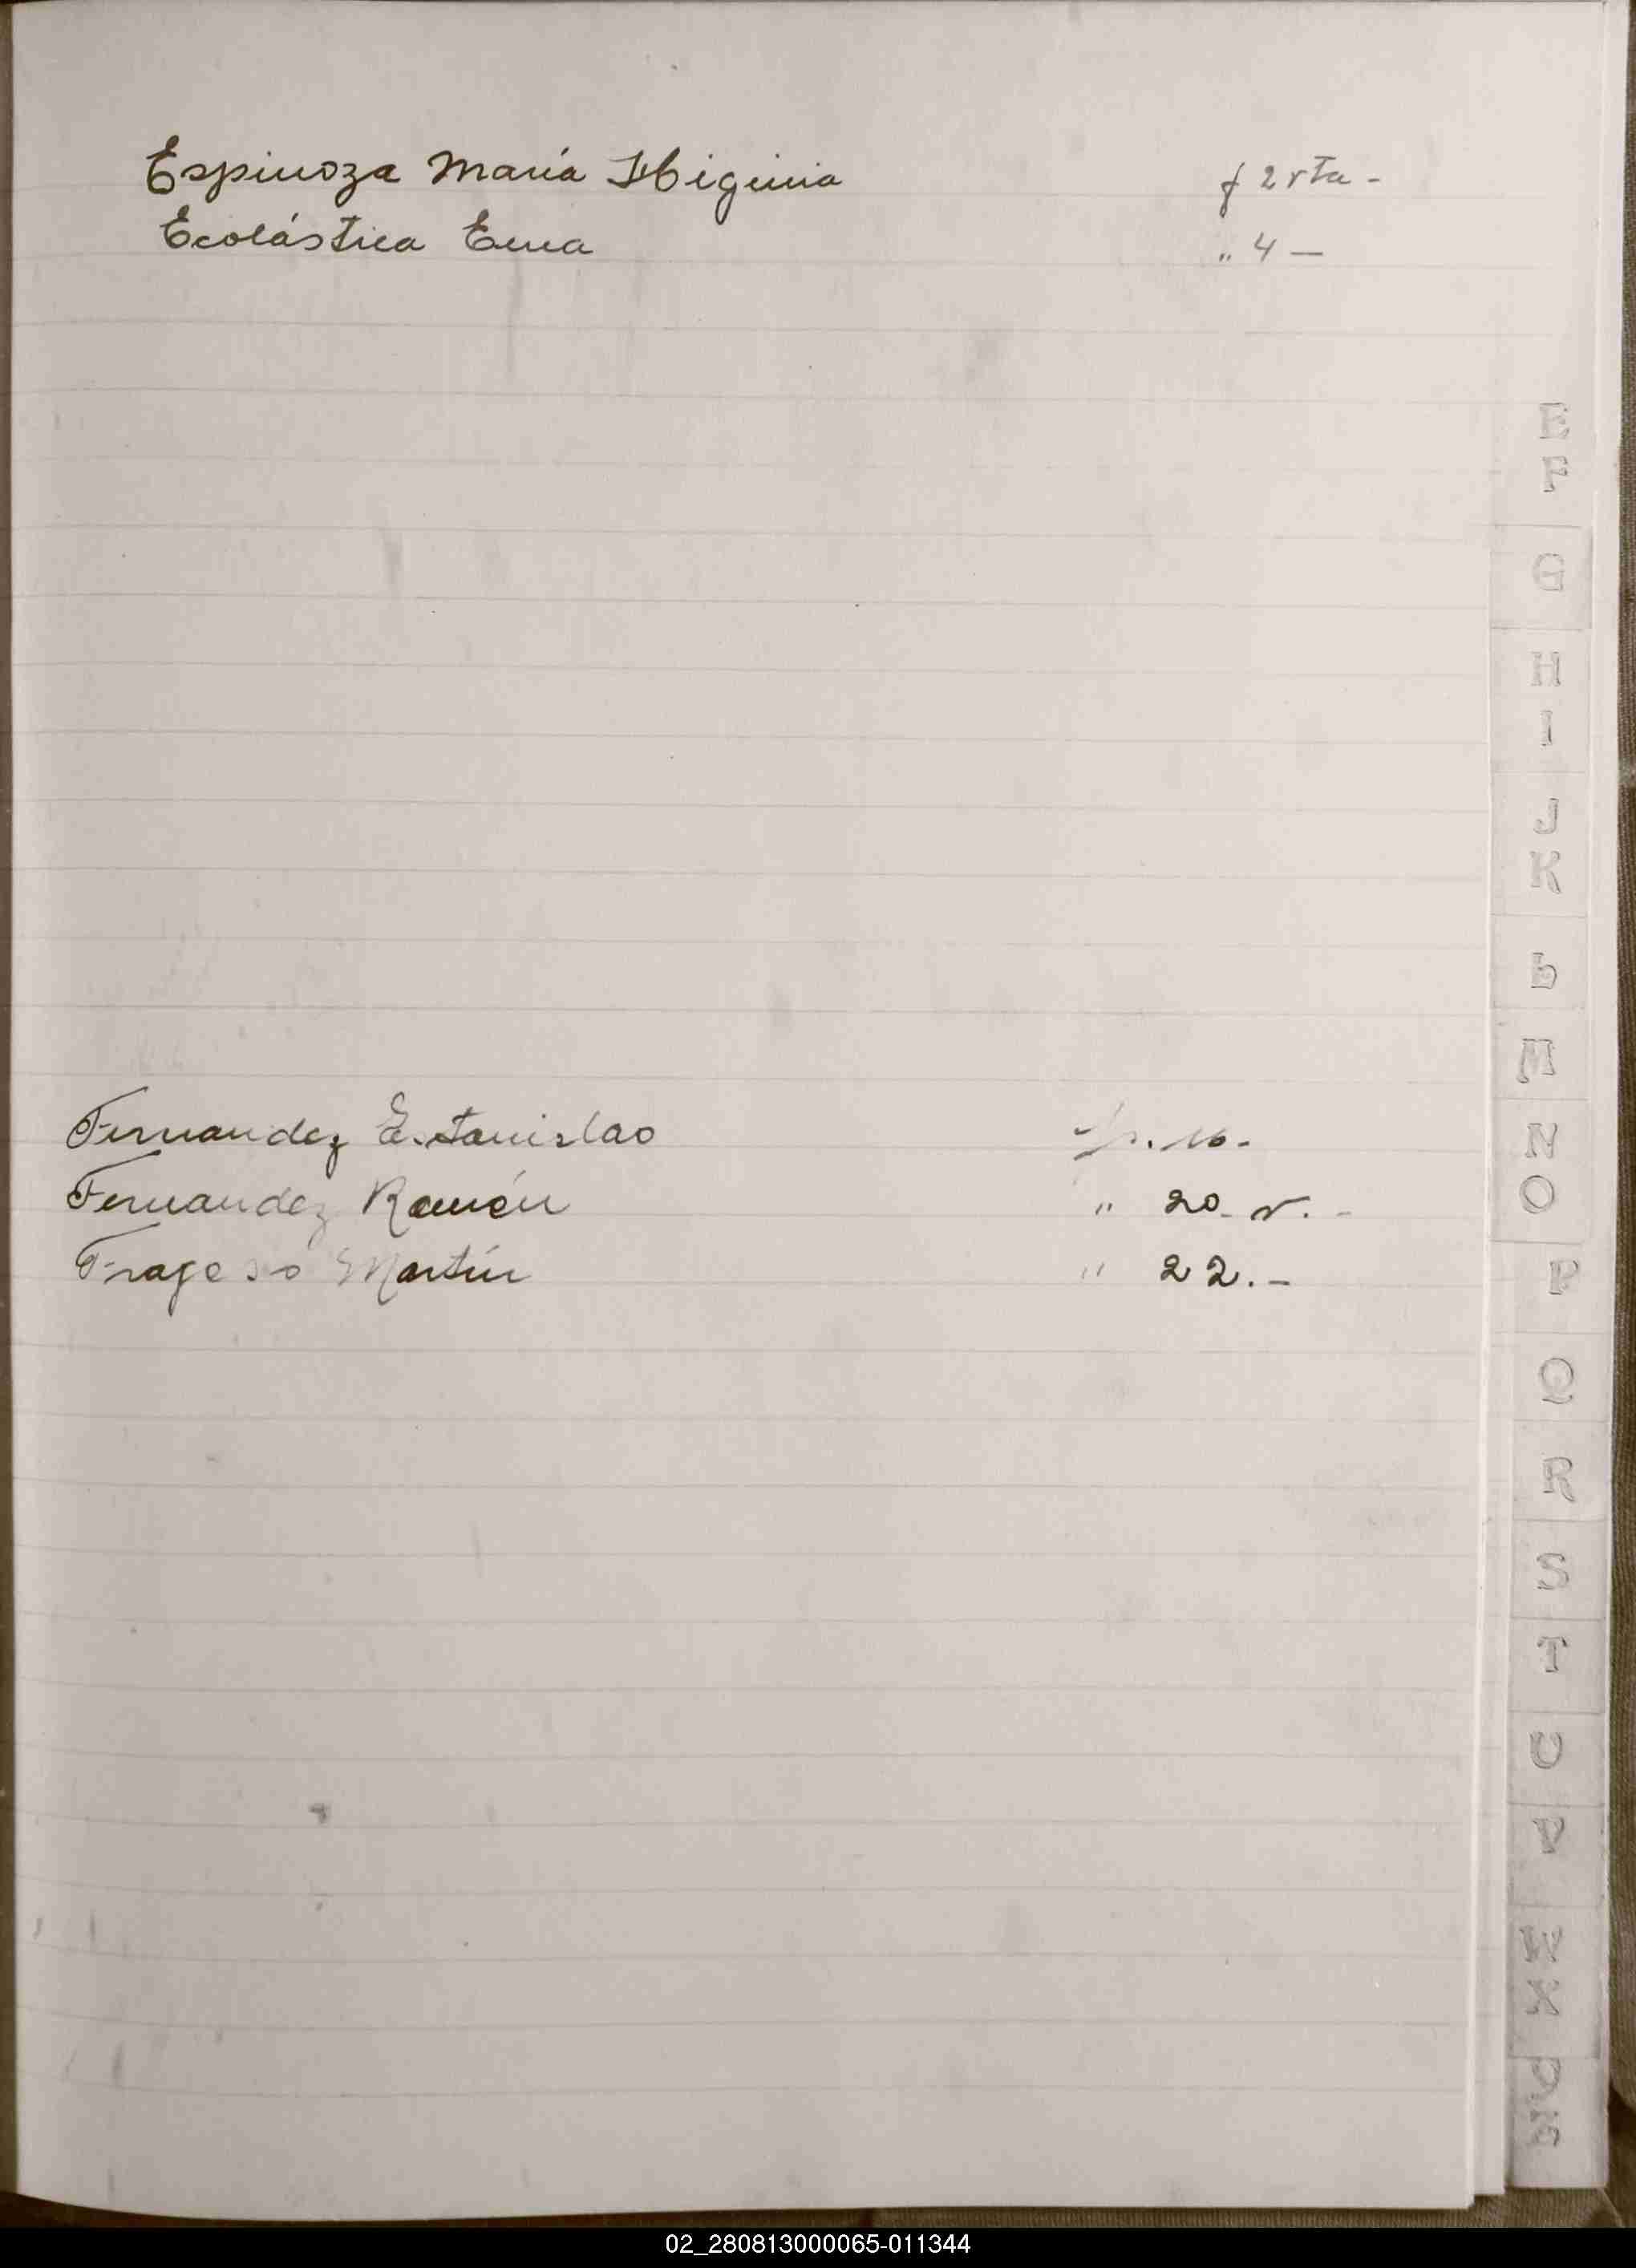 Espinoza María Higinia f 2 vta -
Ecolástica Ema " 4 —
E
F
G
H
I
J
K
L
M
N
O
P
Q
R
S
T
U
V
Fernandez Estanislao fs. 16.-
Fernandez Ramón " 20 v. -
Fragoso Martín " 22.-
02_280813000065-011344